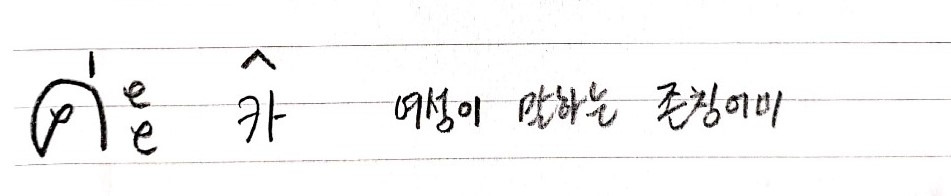 ค่ะ 카 여성이 말하는 존칭어미